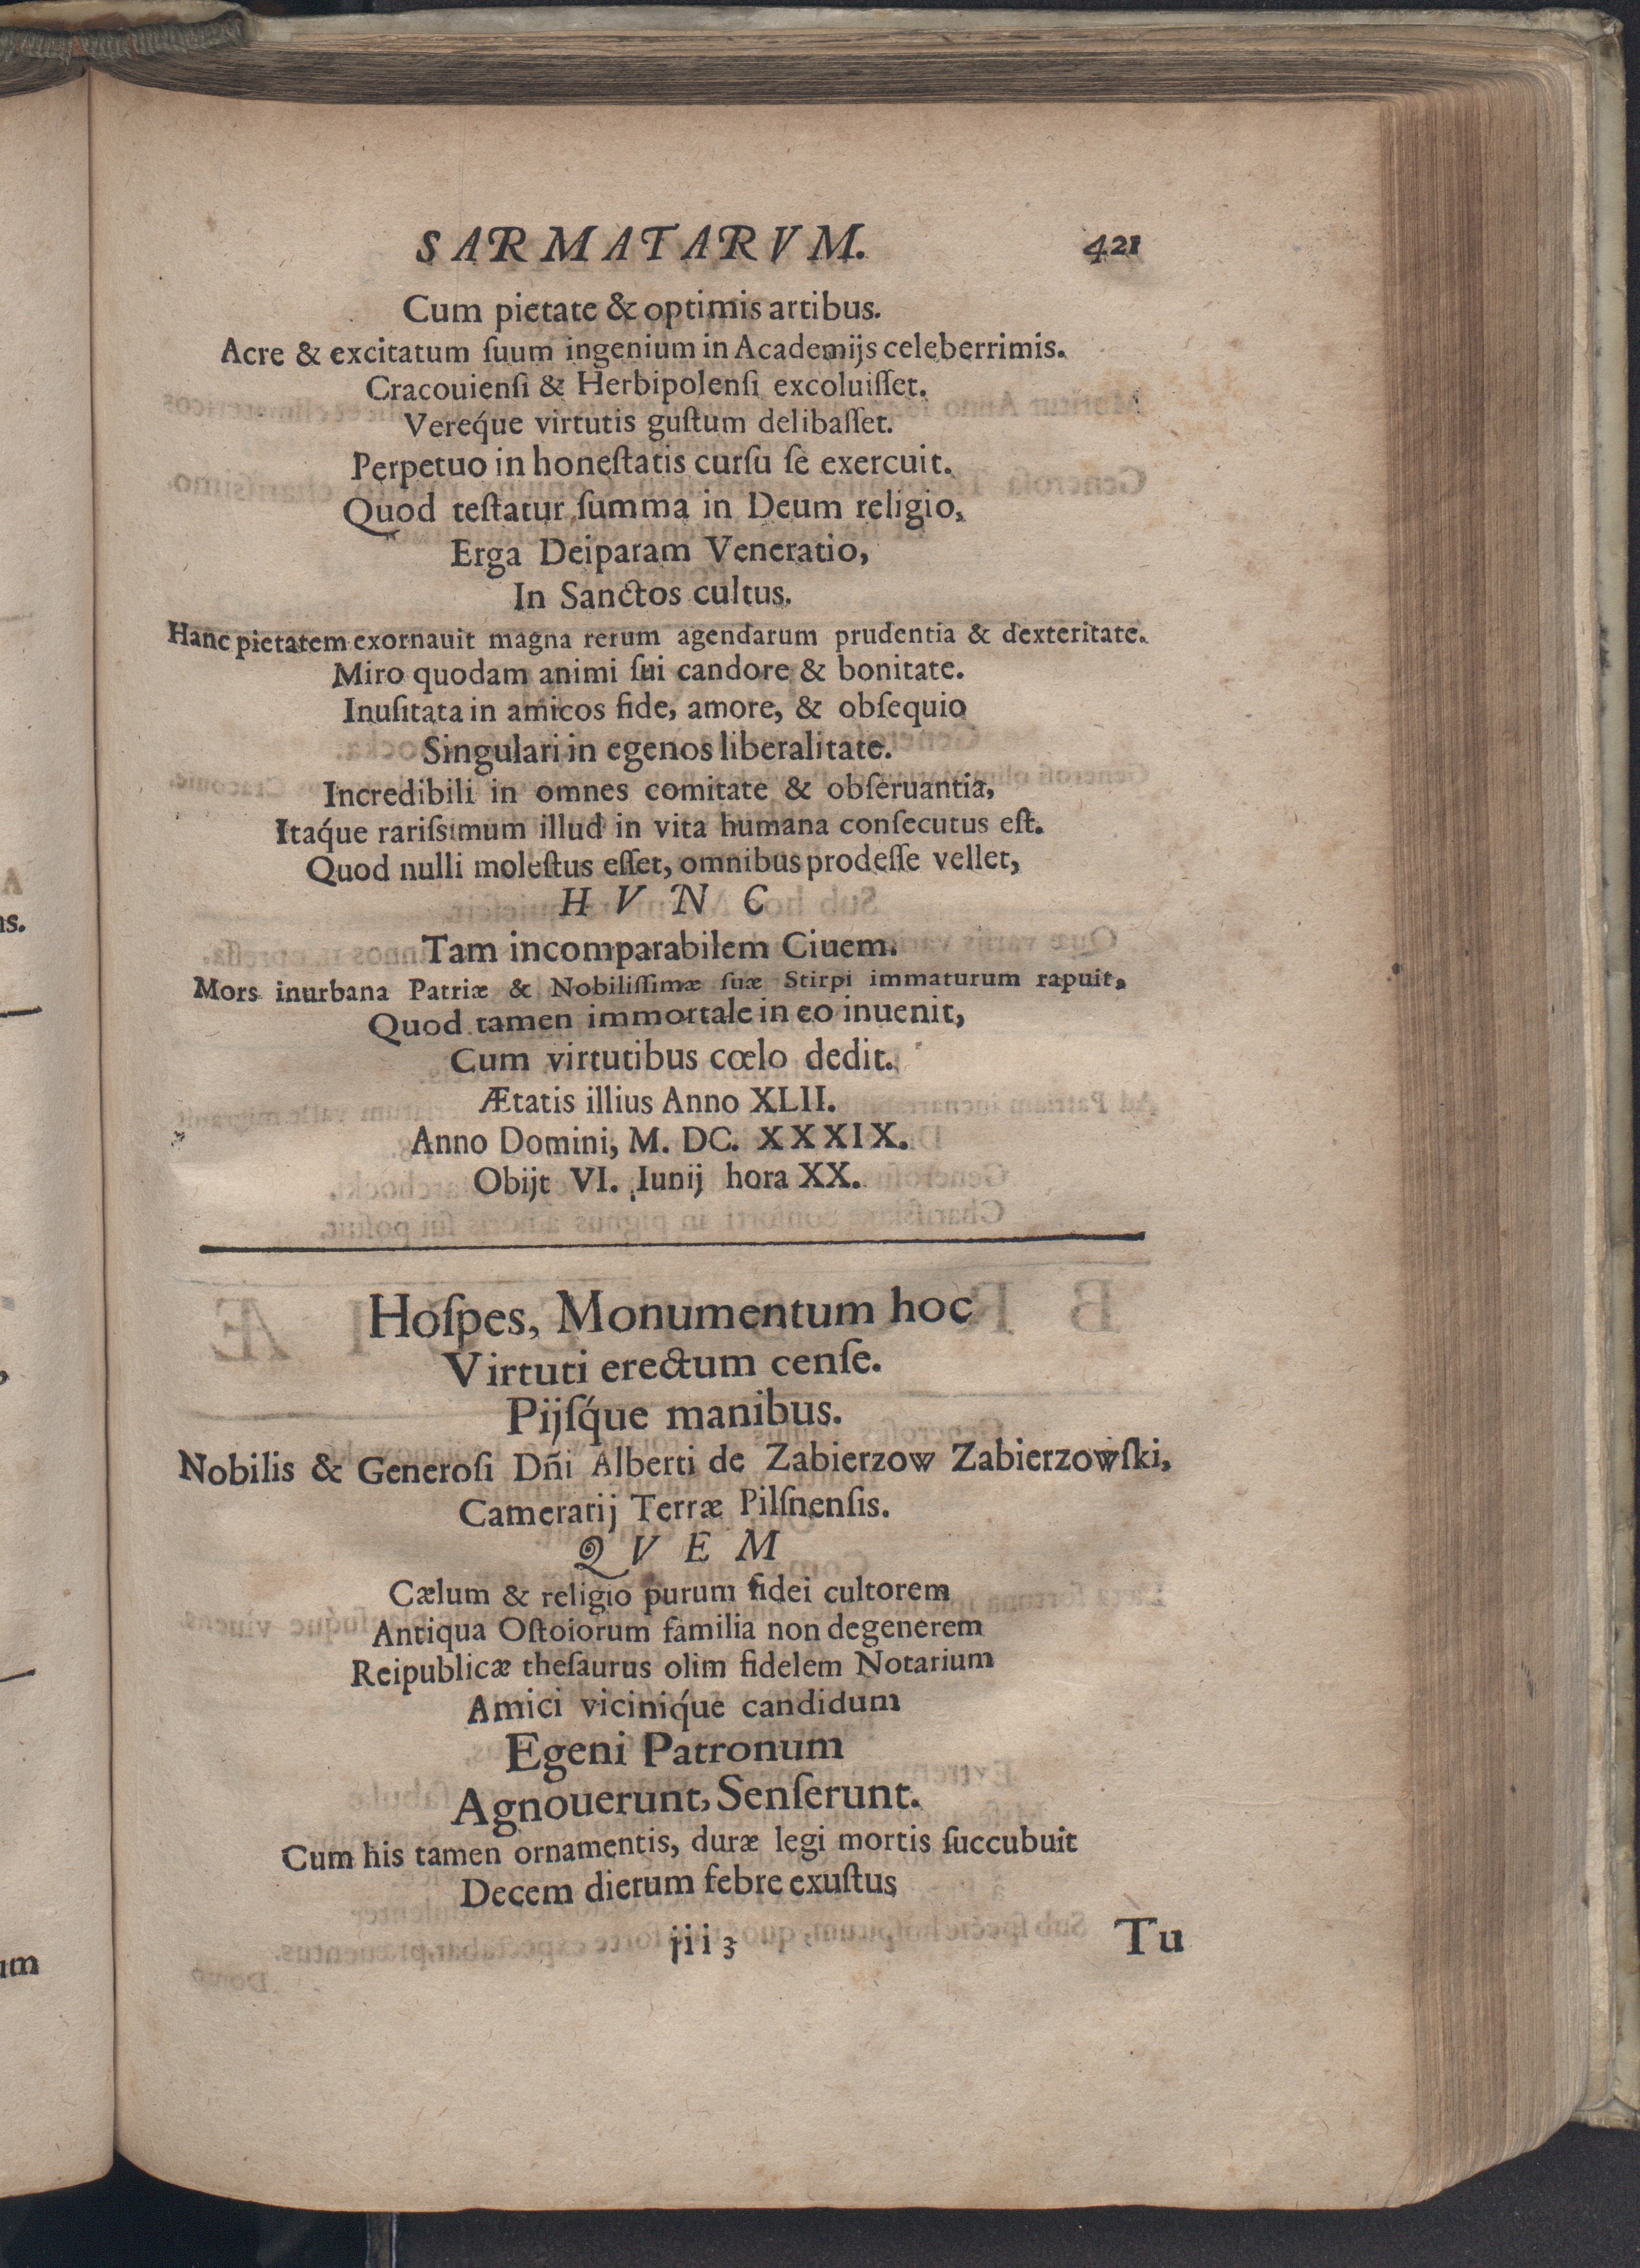 SARMATARVM. 421
Cum pietate & optimis artibus.
Acre & excitatum ſuum ingenium in Academijs celeberrimis.
Cracouienſi & Herbipolenſi excoluiſſet.
Vereq́ue virtutis guſtum delibaſſet.
Perpetuo in honeſtatis curſu ſe exercuit.
Quod teſtatur ſumma in Deum religio,
Erga Deiparam Veneratio,
In Sanctos cultus.
Hanc pietatem exornauit magna rerum agendarum prudentia & dexteritate.
Miro quodam animi ſui candore & bonitate.
Inuſitata in amicos fide, amore, & obſequio
Singulari in egenos liberalitate.
Incredibili in omnes comitate & obſeruantia,
Itaq́ue rariſsimum illud in vita humana conſecutus eſt.
Quod nulli moleſtus eſſet, omnibus prodeſſe vellet,
H V N C
Tam incomparabilem Ciuem.
Mors inurbana Patriæ & Nobiliſſimæ ſuæ Stirpi immaturum rapuit,
Quod tamen immortale in eo inuenit,
Cum virtutibus cœlo dedit.
Ætatis illius Anno XLII.
Anno Domini, M. DC. XXXIX.
Obijt VI. Iunij hora XX.
Hoſpes, Monumentum hoc
Virtuti erectum cenſe.
Pijſq́ue manibus.
Nobilis & Generoſi Dñi Alberti de Zabierzow Zabierzowſki,
Camerarij Terræ Pilſnenſis.
Q V E M
Cælum & religio purum fidei cultorem
Antiqua Oſtoiorum familia non degenerem
Reipublicæ theſaurus olim fidelem Notarium
Amici viciniq́ue candidum
Egeni Patronum
Agnouerunt, Senſerunt.
Cum his tamen ornamentis, duræ legi mortis ſuccubuit
Decem dierum febre exuſtus
iii 3 Tu